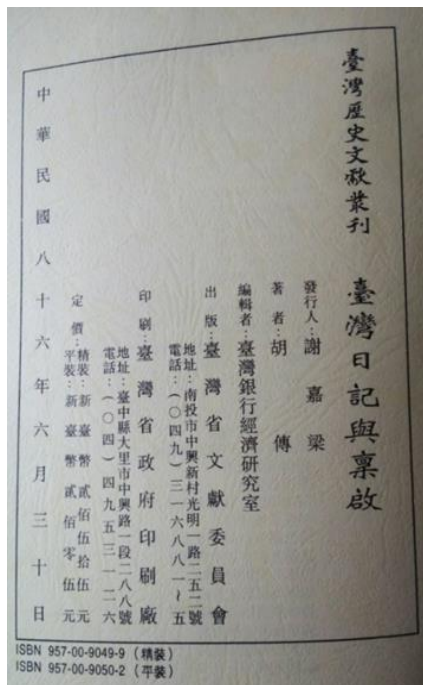 臺灣歷史文獻叢刊 臺灣日記與稟啟
發行人：謝嘉梁
著者：胡傳
編輯者：臺灣銀行經濟研究室
出版：臺灣省文獻委員會
地址：南投市中興新村光明一路二五二號
電話：（〇四九）三一六八八一～五
印刷：臺灣省政府印刷廠
地址：臺中縣大里市中興路一段二八八號
電話：（〇四）四九五三一二六
定價：精裝：新臺幣貳佰伍拾伍元
平裝：新臺幣貳佰零伍元
中華民國八十六年六月三十日
ISBN 957-00-9049-9（精裝）
ISBN 957-00-9050-2（平裝）